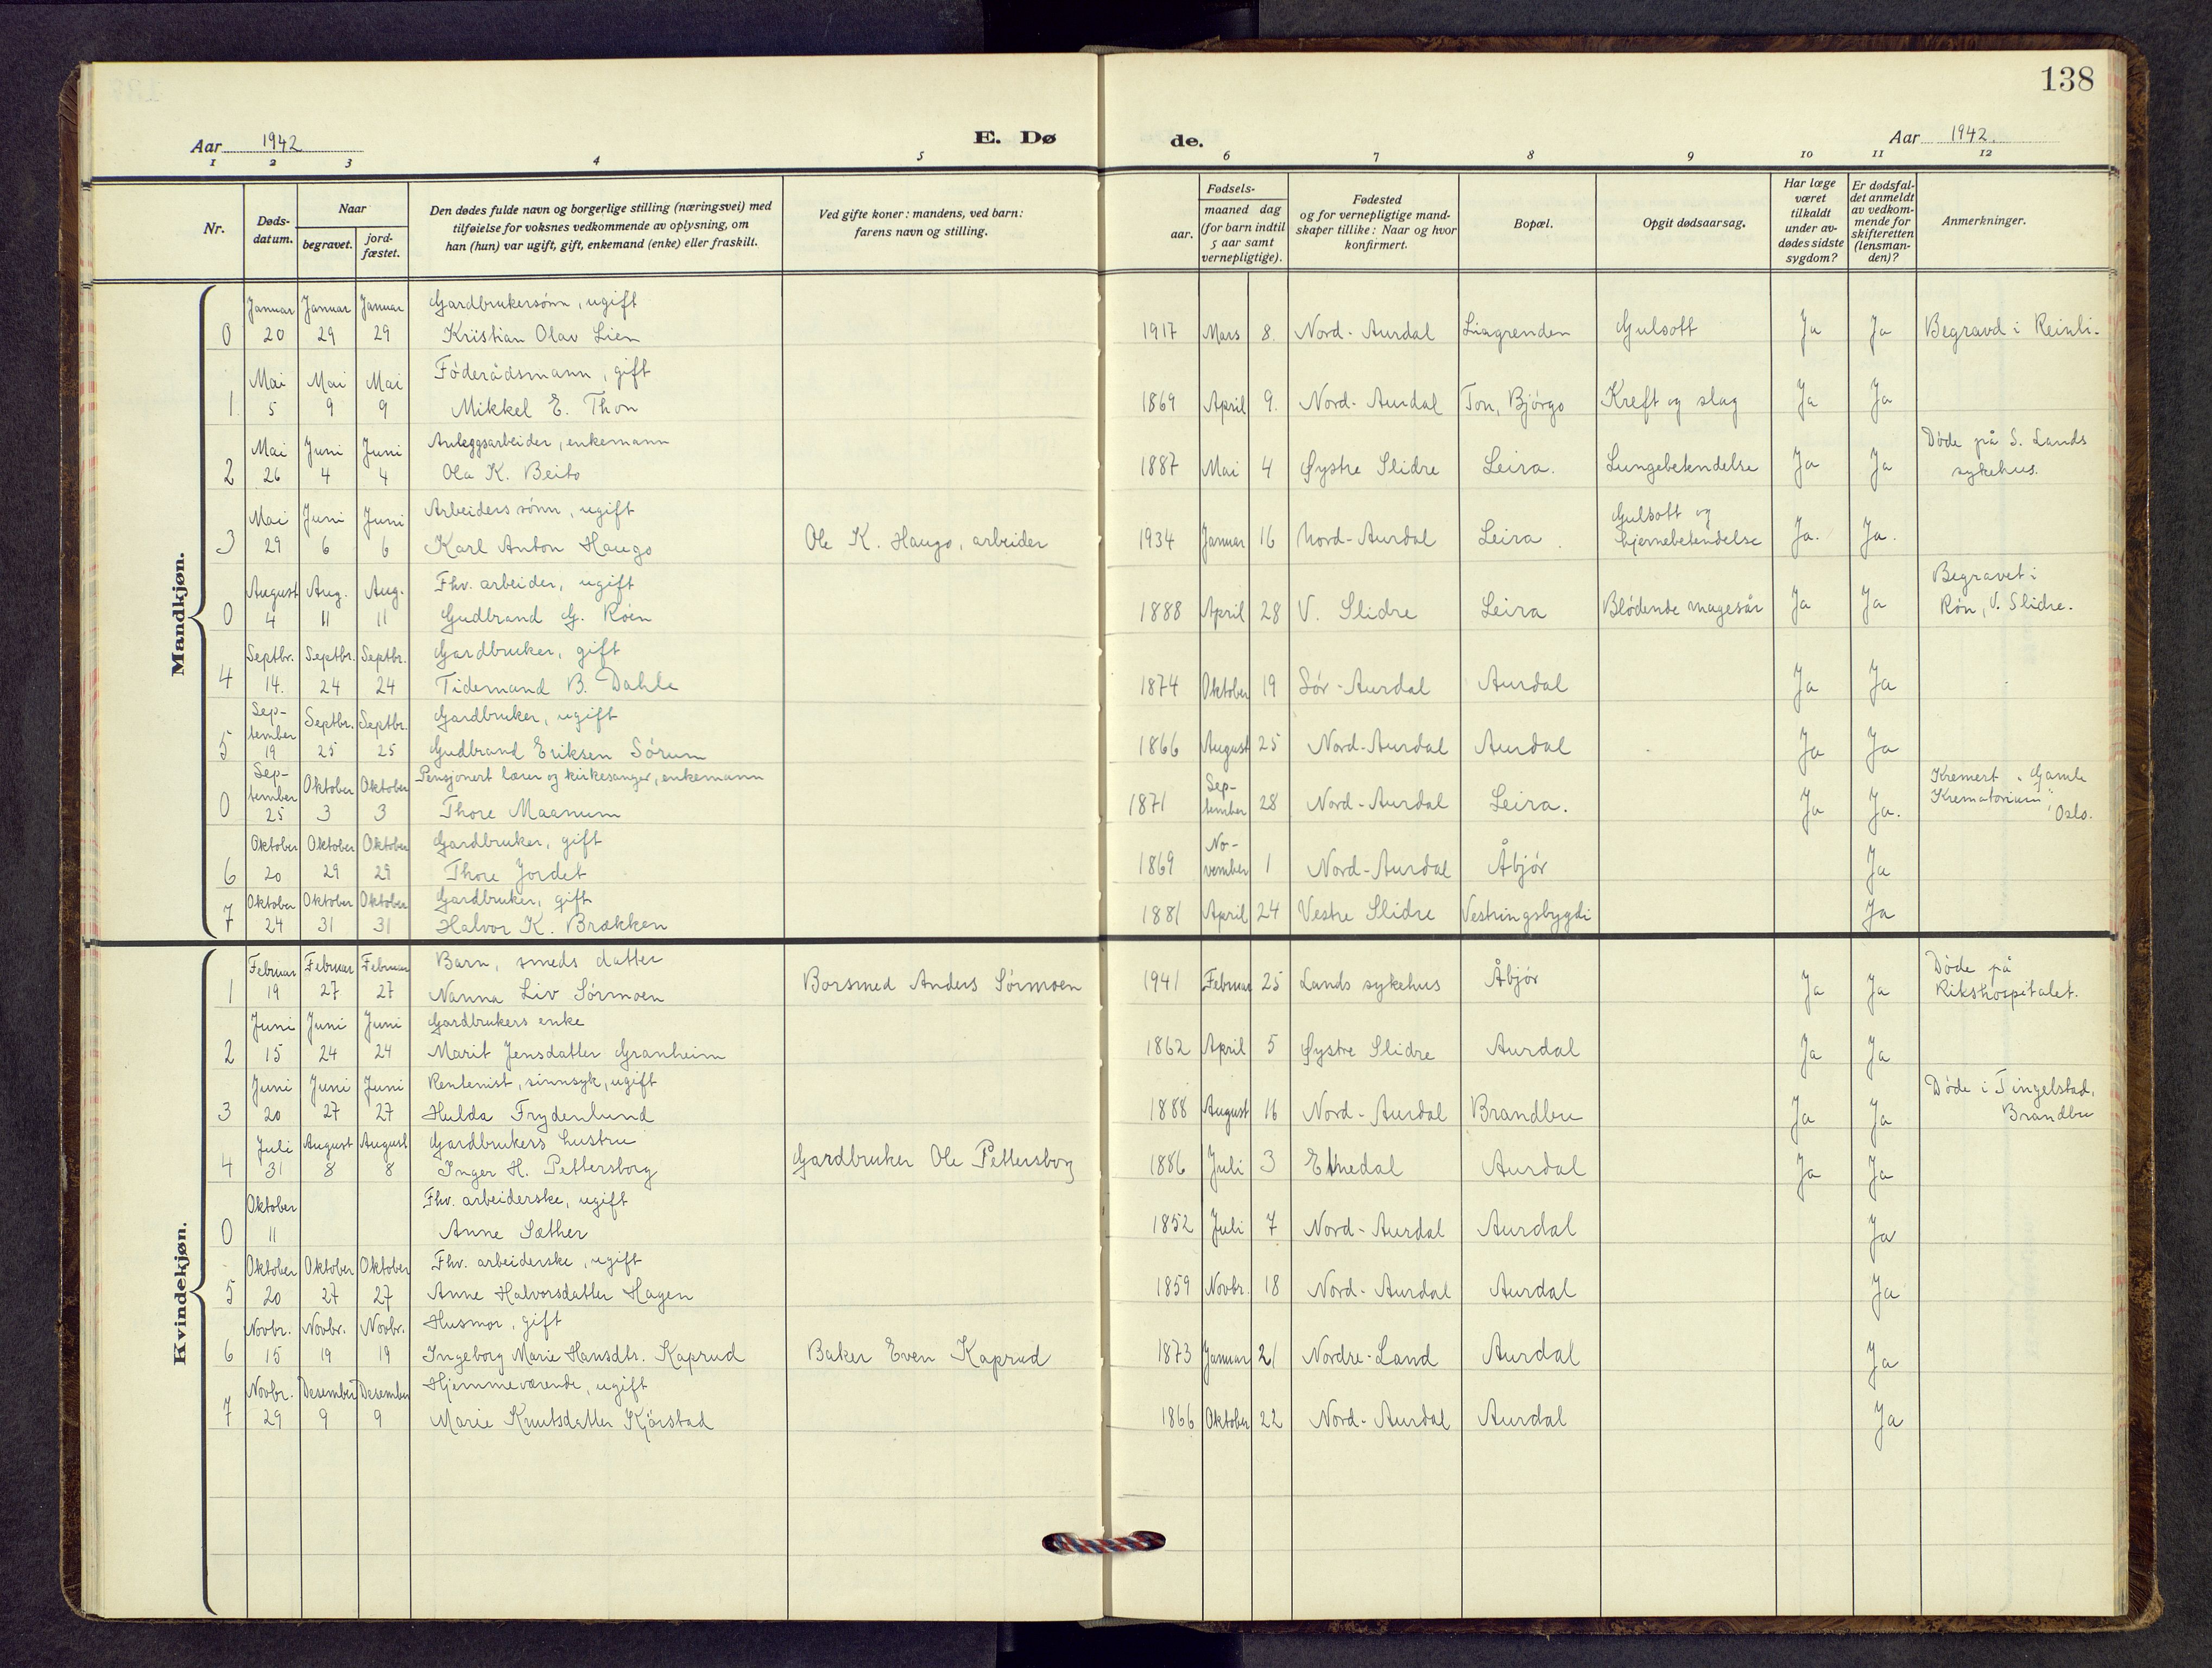 138
Aar 1942 E. Dø de. Aar 1942.
1 2 3 4 5 6 7 8 9 10 11 12
Nr. Døds-datum. Naar begravet. jord-fæstet. Den dødes fulde navn og borgerlige stilling (næringsvei) med tilføielse for voksnes vedkommende av oplysning, om han (hun) var ugift, gift, enkemand (enke) eller fraskilt. Ved gifte koner: mandens, ved barn: farens navn og stilling. Fødsels- aar. maaned dag (for barn indtil 5 aar samt vernepligtige). Fødested og for vernepligtige mand-skaper tillike: Naar og hvor konfirmert. Bopæl. Opgit dødsaarsag. Har læge været tilkaldt under av-dødes sidste sygdom? Er dødsfal-det anmeldt av vedkom-mende for skifteretten (lensman-den)? Anmerkninger.
Mandkjøn.
Januar Januar Januar Gardbrukersønn, ugift
0 20 29 29 Kristian Olav Lien 1917 Mars 8. Nord-Aurdal Liagrenden Gulsott Ja Ja Begravd i Reinli.
Mai Mai Mai Føderådsmann, gift
1. 5 9 9 Mikkel E. Thon 1869 April 9. Nord-Aurdal Ton, Bjørgo Kreft og slag Ja Ja
Mai Juni Juni Anleggsarbeider, enkemann Døde på S. Lands
2 26 4 4 Ola K. Beito 1887 Mai 4 Øystre Slidre Leira. Lungebetendelse Ja Ja sykehus.
Mai Juni Juni Arbeiders sønn, ugift Gulsott og
3 29 6 6 Karl Anton Haugo Ole K. Haugo, arbeider 1934 Januar 16 Nord-Aurdal Leira. hjernebetendelse Ja. Ja.
August Aug. Aug. Fhv. arbeider, ugift Begravet i
0 4 11 11 Gudbrand G. Røen 1888 April 28 V. Slidre Leira Blødende magesår Ja Ja Røn, V. Slidre.
Septbr. Septbr. Septbr. Gardbruker, gift
4 14. 24 24 Tidemand B. Dahle 1874 Oktober 19 Sør-Aurdal Aurdal Ja Ja
Sep-tember Septbr. Septbr. Gardbruker, ugift
5 19 25 25 Gudbrand Eriksen Sørum 1866 August 25 Nord-Aurdal Aurdal Ja Ja
Sep-tember Oktober Oktober Pensjonert lærer og kirkesanger, enkemann Sep- Kremert "Gamle
0 25 3 3 Thore Maanum 1871 tember 28 Nord-Aurdal Leira. Ja Ja. Krematorium", Oslo.
Oktober Oktober Oktober Gardbruker, gift No-
6 20 29 29 Thore Jordet 1869 vember 1 Nord-Aurdal Åbjør Ja
Oktober Oktober Oktober Gardbruker, gift
7 24 31 31 Halvor K. Brækken 1881 April 24 Vestre Slidre Vestringsbygdi Ja
Kvindekjøn.
Februar Februar Februar Barn, smeds datter Døde på
1 19 27 27 Nanna Liv Sørmoen Borsmed Anders Sørmoen 1941 Februar 25 Lands sykehus Åbjør Ja Ja Rikshospitalet.
Juni Juni Juni Gardbrukers enke
2 15 24 24 Marit Jensdatter Granheim 1862 April 5 Øystre Slidre Aurdal Ja Ja
Juni Juni Juni Rentenist, sinnsyk, ugift Døde i Tingelstad,
3 20 27 27 Hulda Frydenlund 1888 August 16 Nord-Aurdal Brandbu Ja Ja Brandbu
Juli August August Gardbrukers hustru
4 31 8 8 Inger H. Pettersborg Gardbruker Ole Pettersborg 1886 Juli 3 Etnedal Aurdal Ja Ja
Oktober Fhv. arbeiderske, ugift
0 11 Anne Sæther 1852 Juli 7 Nord-Aurdal Aurdal Ja
Oktober Oktober Oktober Fhv. arbeiderske, ugift
5 20 27 27 Anne Halvorsdatter Hagen 1859 Novbr. 18 Nord-Aurdal Aurdal Ja
Novbr. Novbr. Novbr. Husmor, gift
6 15 19 19 Ingeborg Marie Hansdtr. Kaprud Baker Even Kaprud 1873 Januar 21 Nordre-Land Aurdal Ja
Novbr. Desember Desember Hjemmeværende, ugift
7 29 9 9 Marie Knutsdatter Kjørstad 1866 Oktober 22 Nord-Aurdal Aurdal Ja